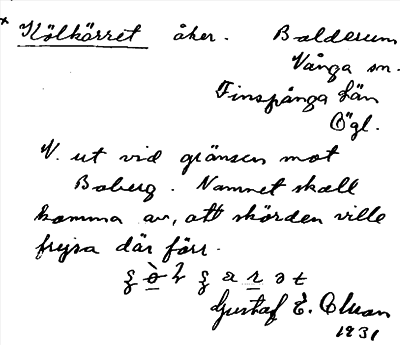 * Kölkärret åker. Balderum
Vånga sn.
Finspånga län
Ögl.
N. ut vid gränsen mot
Boberg. Namnet skall
komma av, att skörden ville
frysa där förr.
Gustaf E.
1931